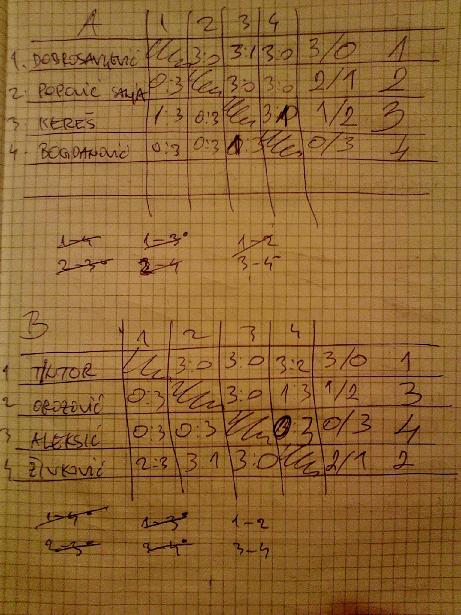 A 1 2 3 4
1. DOBROSAVLJEVIĆ 3:0 3:1 3:0 3/0 1
2. POPOVIĆ SANJA 0:3 3:0 3:0 2/1 2
3. KEREŠ 1:3 0:3 3:1 1/2 3
4. BOGDANOVIĆ 0:3 0:3 1:3 0/3 4
1-4 1-3 1-2
2-3 2-4 3-4
B 1 2 3 4
1 TINTOR 3:0 3:0 3:2 3/0 1
2 0:3 3:0 1:3 1/2 3
3 ALEKSIĆ 0:3 0:3 0:3 0/3 4
4 ŽIVKOVIĆ 2:3 3 1 3:0 2/1 2
1-4 1-3 1-2
2-3 2-4 3-4